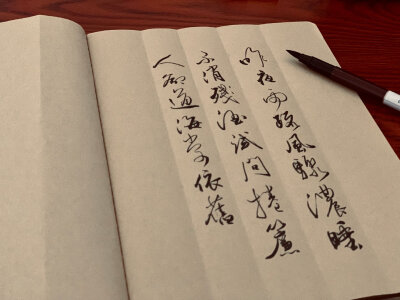 昨夜雨疏風驟濃睡
不消殘酒試問捲簾
人卻道海棠依舊